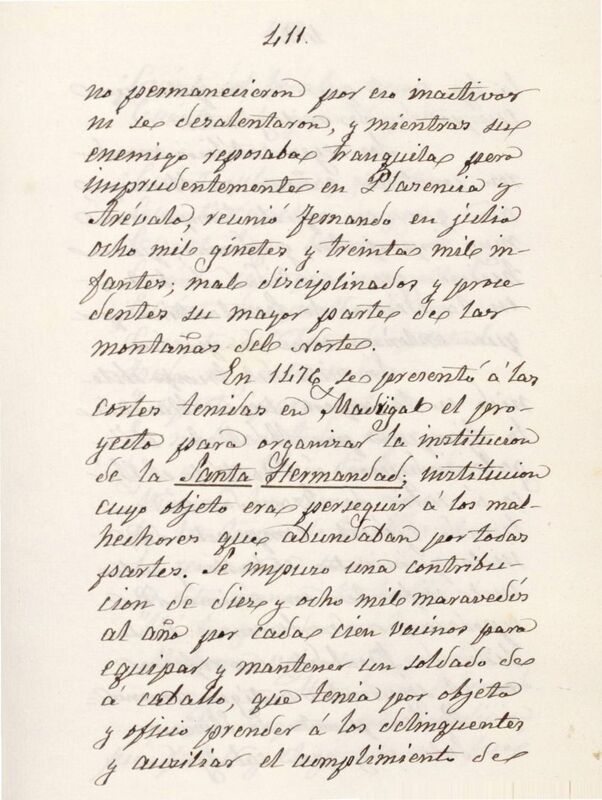 411.
no permanecieron por eso inactivos
ni se desalentaron, y mientras su
enemigo reposaba tranquila pero
imprudentemente en Plasencia y
Arévalo, reunió Fernando en julio
ocho mil ginetes y treinta mil in-
fantes; mal disciplinados y proce
dentes su mayor parte de las
montañas del Norte.
En 1476 se presentó á las
cortes tenidas en Madrigal el pro-
yecto para organizar la institucion
de la Santa Hermandad; institucion
cuyo objeto era perseguir á los mal-
hechores que abundaban por todas
partes. Se impuso una contribu-
cion de diez y ocho mil maravedís
al año por cada cien vecinos para
equipar y mantener un soldado de
á caballo, que tenia por objeto
y oficio prender á los delinquentes
y auxiliar el cumplimiento de